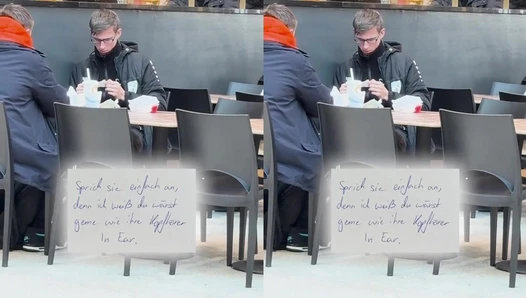 Sprich sie einfach an,
denn ich weiß du wärst
gerne wie ihre Kopfhörer
In Ear.
Sprich sie einfach an,
denn ich weiß du wärst
gerne wie ihre Kopfhörer
In Ear.